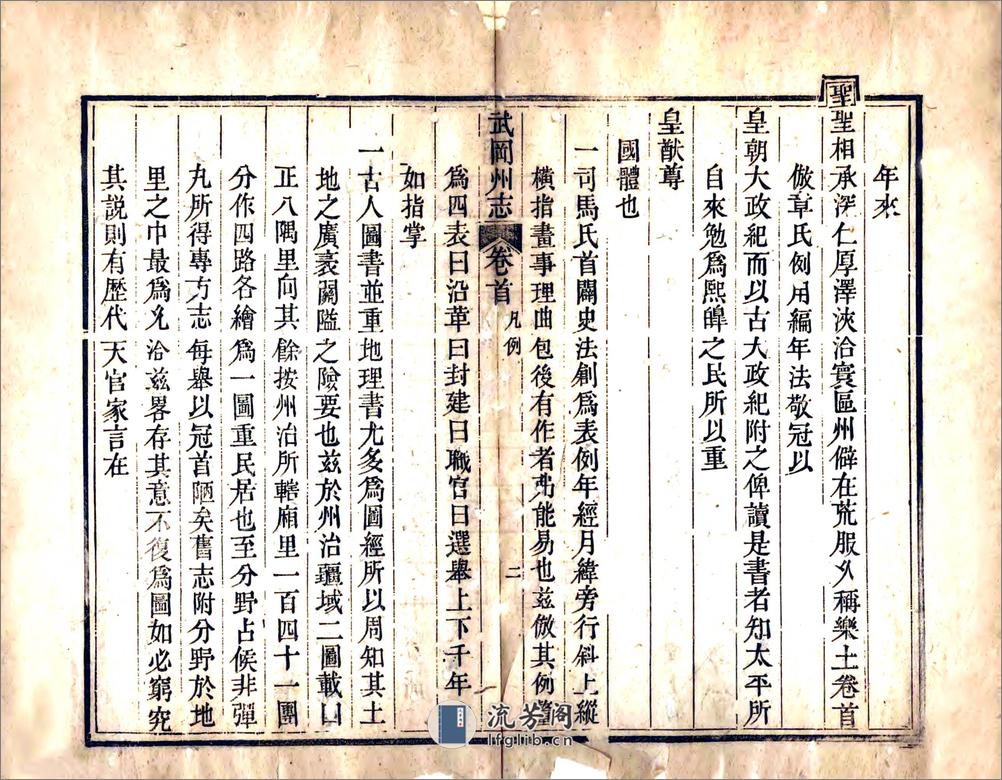 年來
聖聖相承深仁厚澤浹洽寰區州僻在荒服久稱樂土卷首
倣章氏例用編年法敬冠以
皇朝大政紀而以古大政紀附之俾讀是書者知太平所
自來勉爲熙皥之民所以重
皇猷尊
國體也
一司馬氏首闢史法創爲表例年經月緯旁行斜上縱
橫指畫事理曲包後有作者弗能易也兹倣其例
武岡州志 卷首 凡例 二
爲四表曰沿革曰封建曰職官曰選舉上下千年
如指掌
一古人圖書並重地理書尤多爲圖經所以周知其土
地之廣袤關隘之險要也兹於州治疆域二圖載
正八隅里向其餘按州治所轄廂里一百四十一團
分作四路各繪爲一圖重民居也至分野占候非彈
丸所得專方志每舉以冠首陋矣舊志附分野於地
里之中最爲允洽兹畧存其意不復爲圖如必窮究
其説則有歷代天官家言在
流芳閣
lfglib.cn